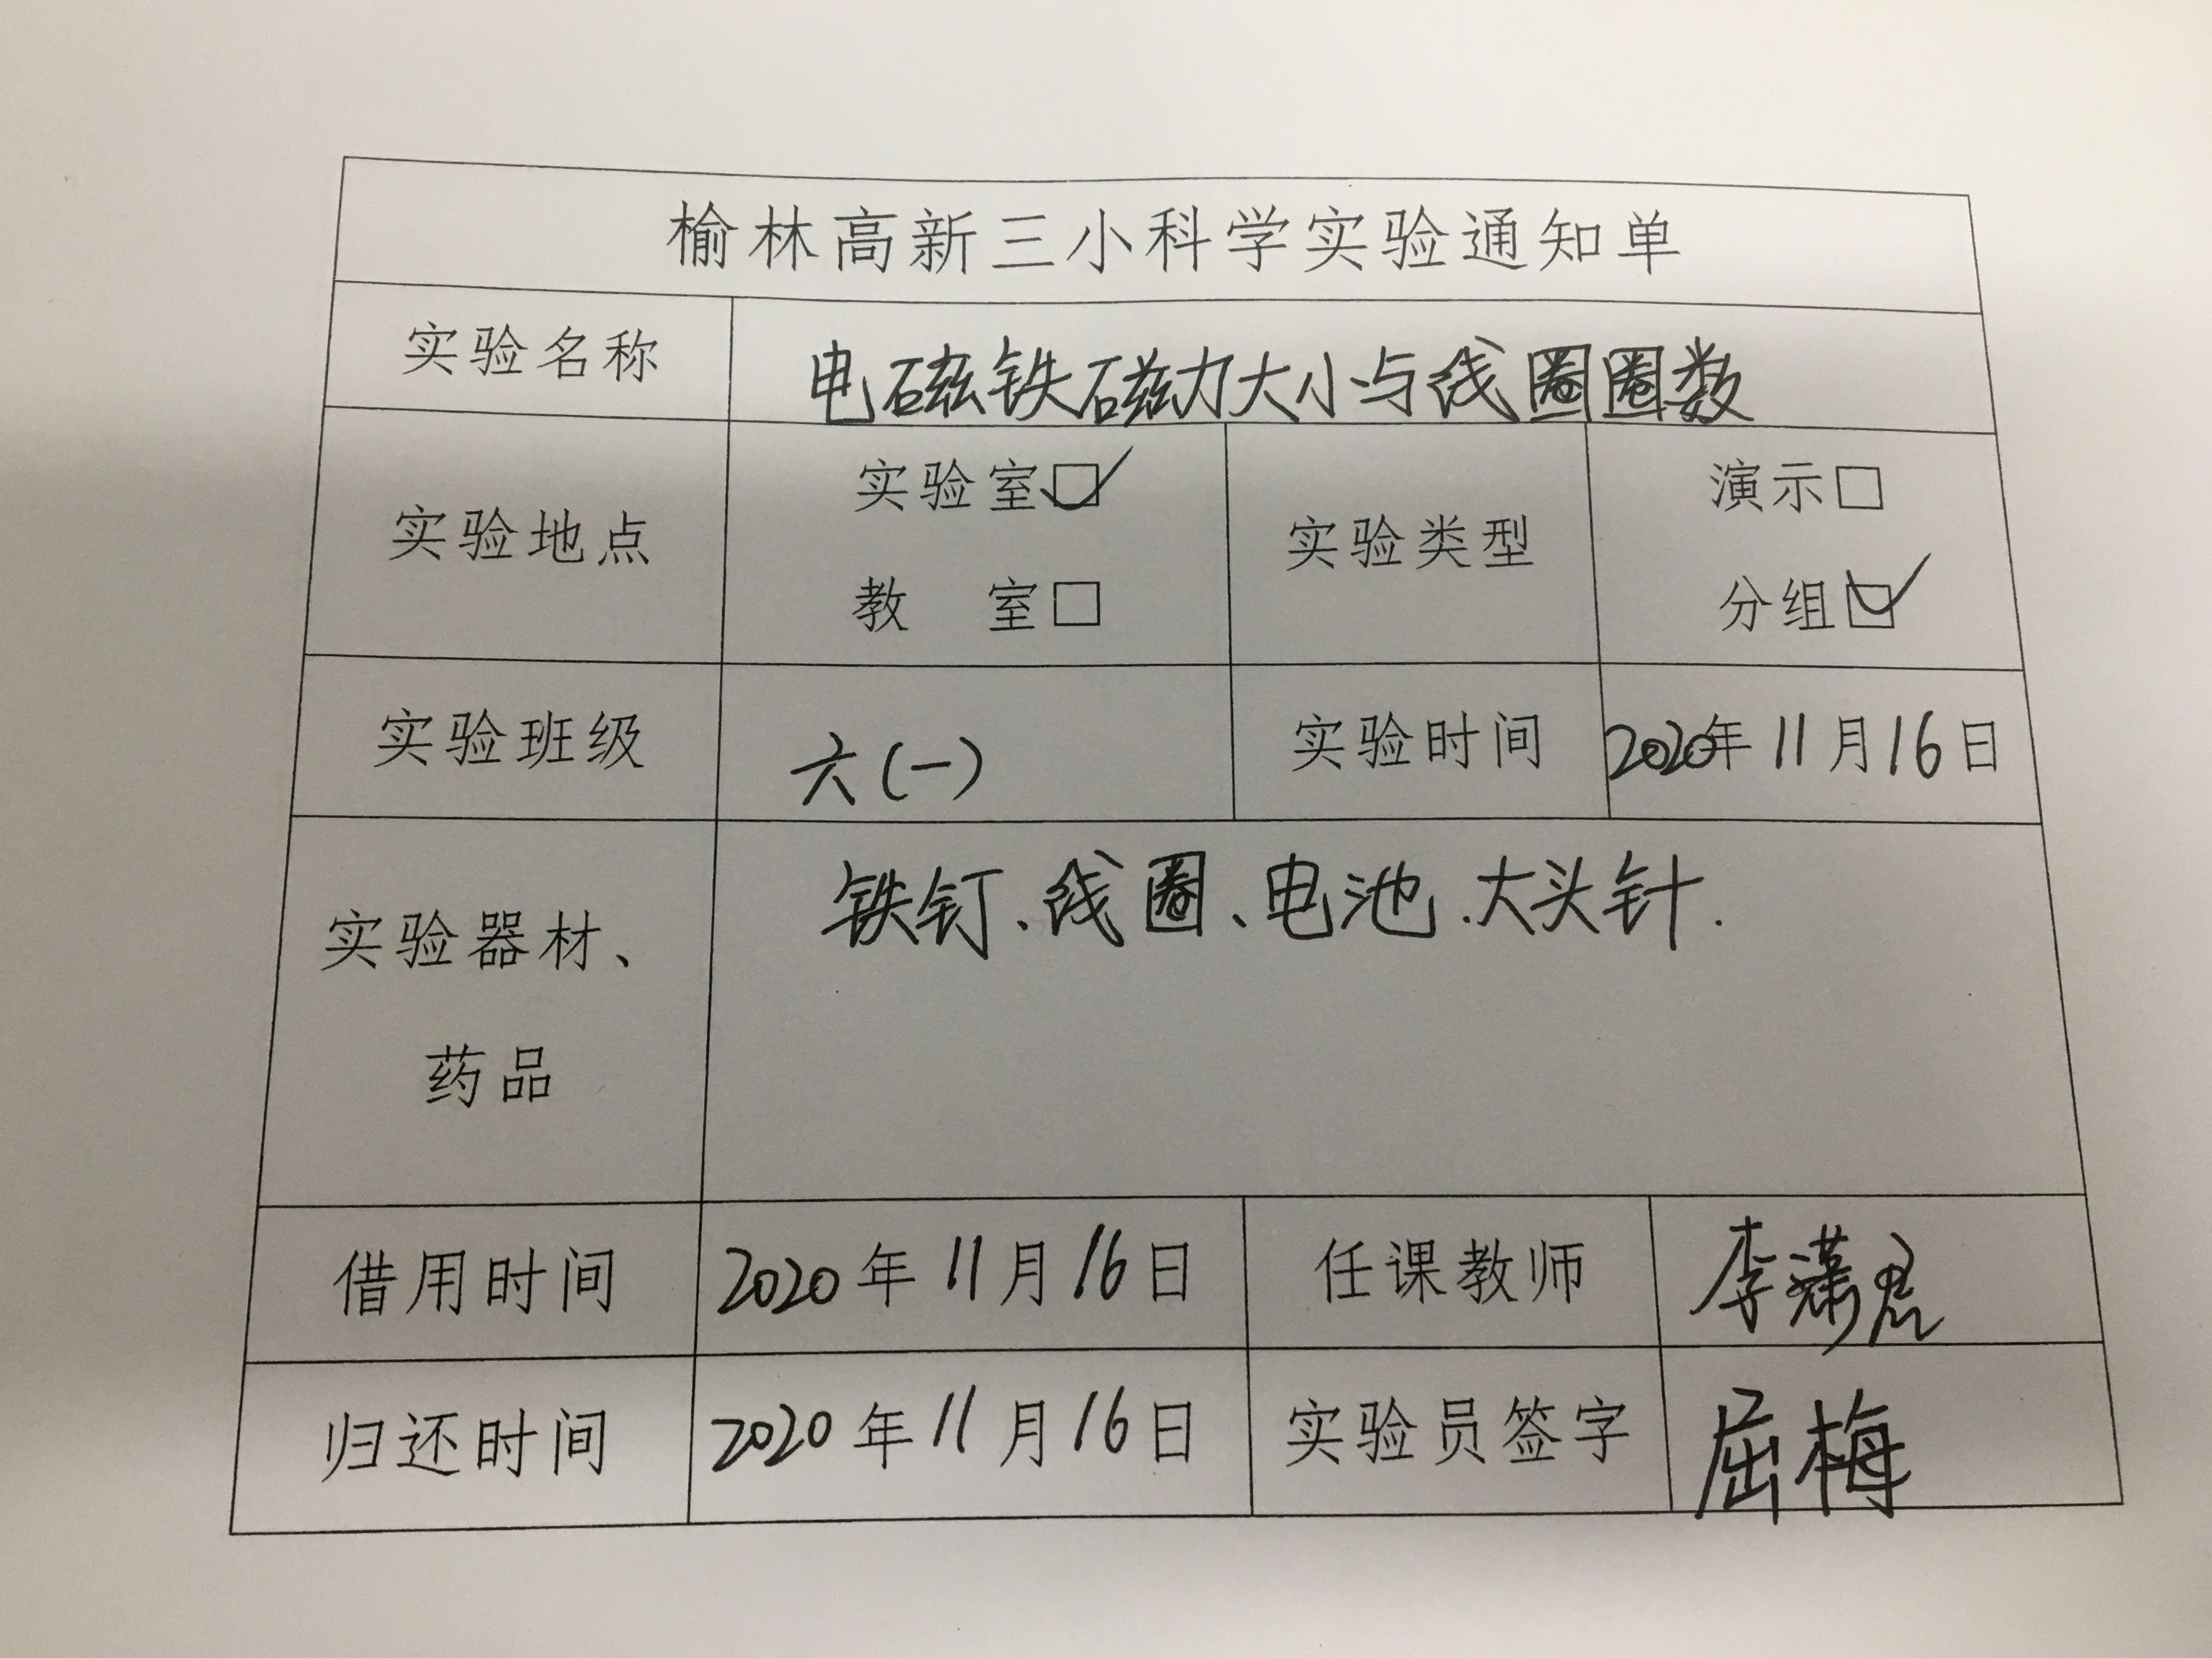 榆林高新三小科学实验通知单
实验名称 电磁铁磁力大小与线圈圈数
实验地点 实验室☑ 教 室□ 实验类型 演示□ 分组☑
实验班级 六(一) 实验时间 2020年11月16日
实验器材、药品 铁钉、线圈、电池.大头针.
借用时间 2020年11月16日 任课教师 李潇
归还时间 2020年11月16日 实验员签字 屈梅